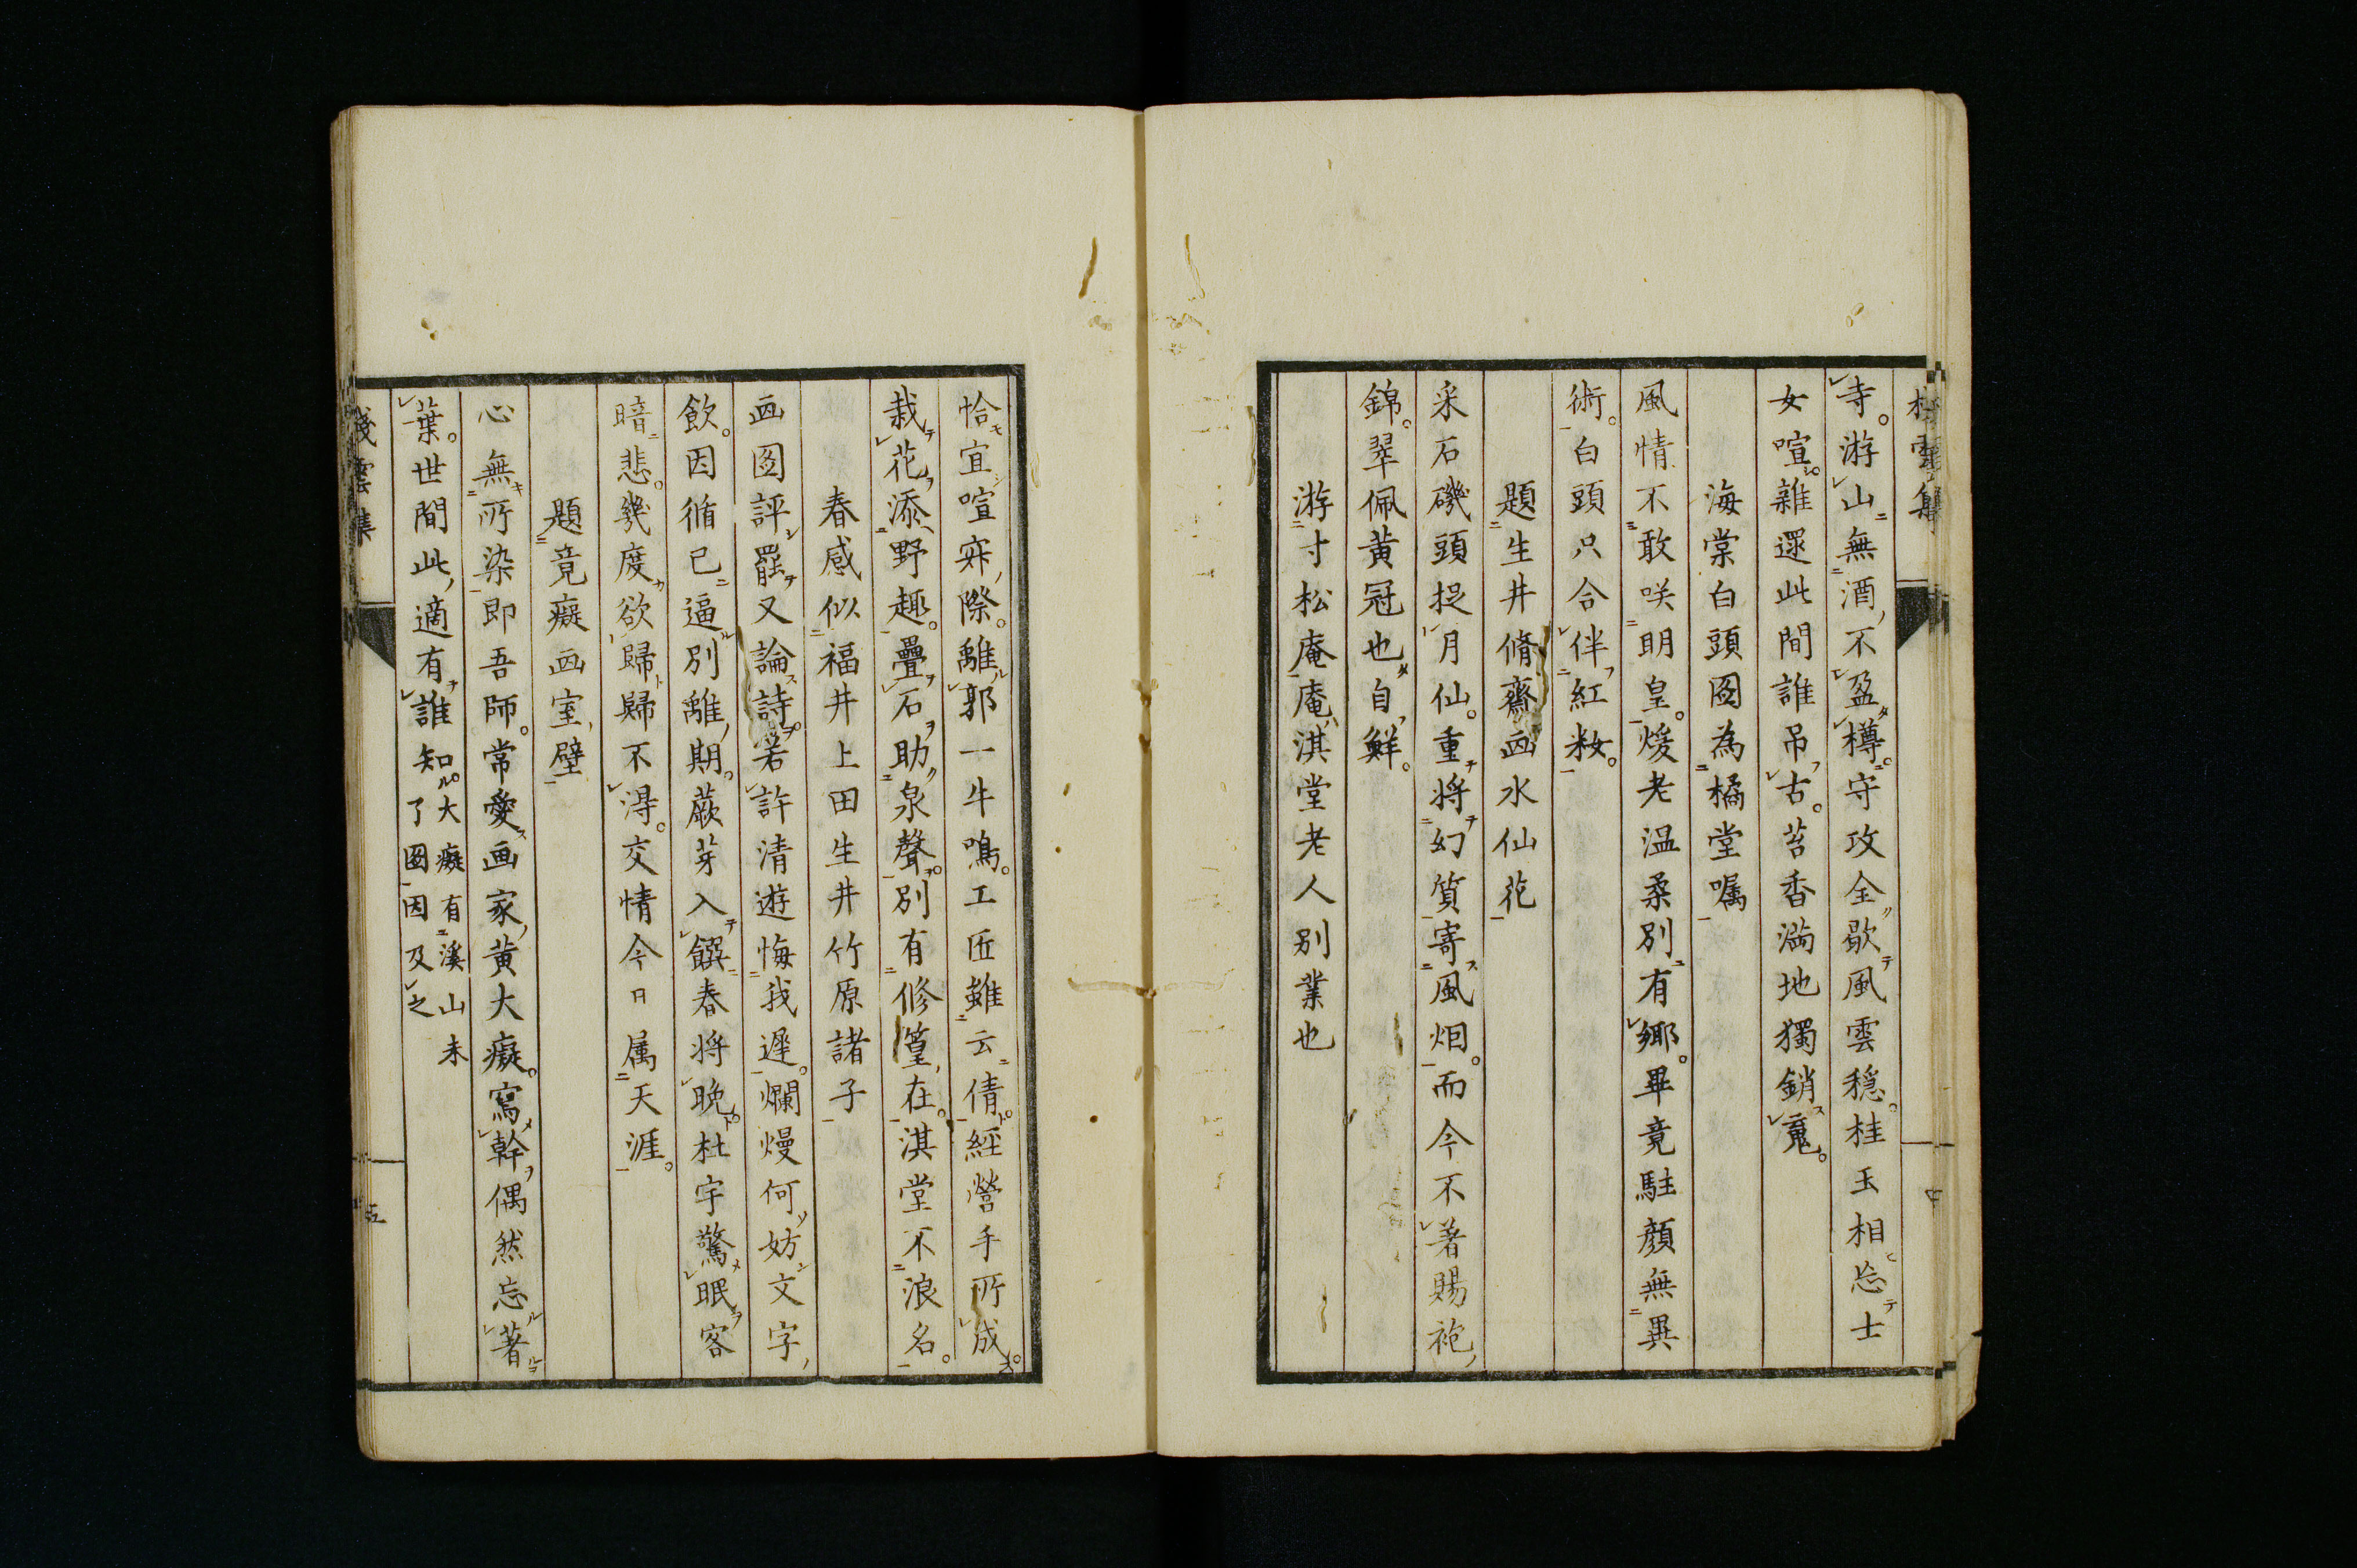 寺。游山無酒不盈樽。守攻全歇風雲穏。桂玉相忘士
女喧。雜還此間誰吊古。苔香満地獨銷䰟。
海棠白頭図為橘堂嘱
風情不敢咲明皇。煖老温柔別有郷。畢竟駐顔無異
術。白頭只合伴紅粧。
題生井脩齋画水仙花
采石磯頭捉月仙。重将幻質寄風烟。而今不著賜袍
錦。翠佩黄冠也自鮮。
游寸松庵庵淇堂老人別業也
恰宜喧寂際。離郭一牛鳴。工匠雖云倩。経營手所成。
栽花添野趣。疊石助泉聲。別有修篁在。淇堂不浪名。
春感似福井上田生井竹原諸子
画図評罷又論詩。若許清遊悔我遲。爛熳何妨文字
飲。因循已逼別離期。蕨芽入饌春将晩。杜宇驚眠客
暗悲。幾度欲歸歸不得。交情今日属天涯。
題竟癡画室壁
心無所染即吾師。常愛画家黄大癡。寫幹偶然忘著
葉。世間此適有誰知
大癡有溪山未
了図因及之
棧雲集
五